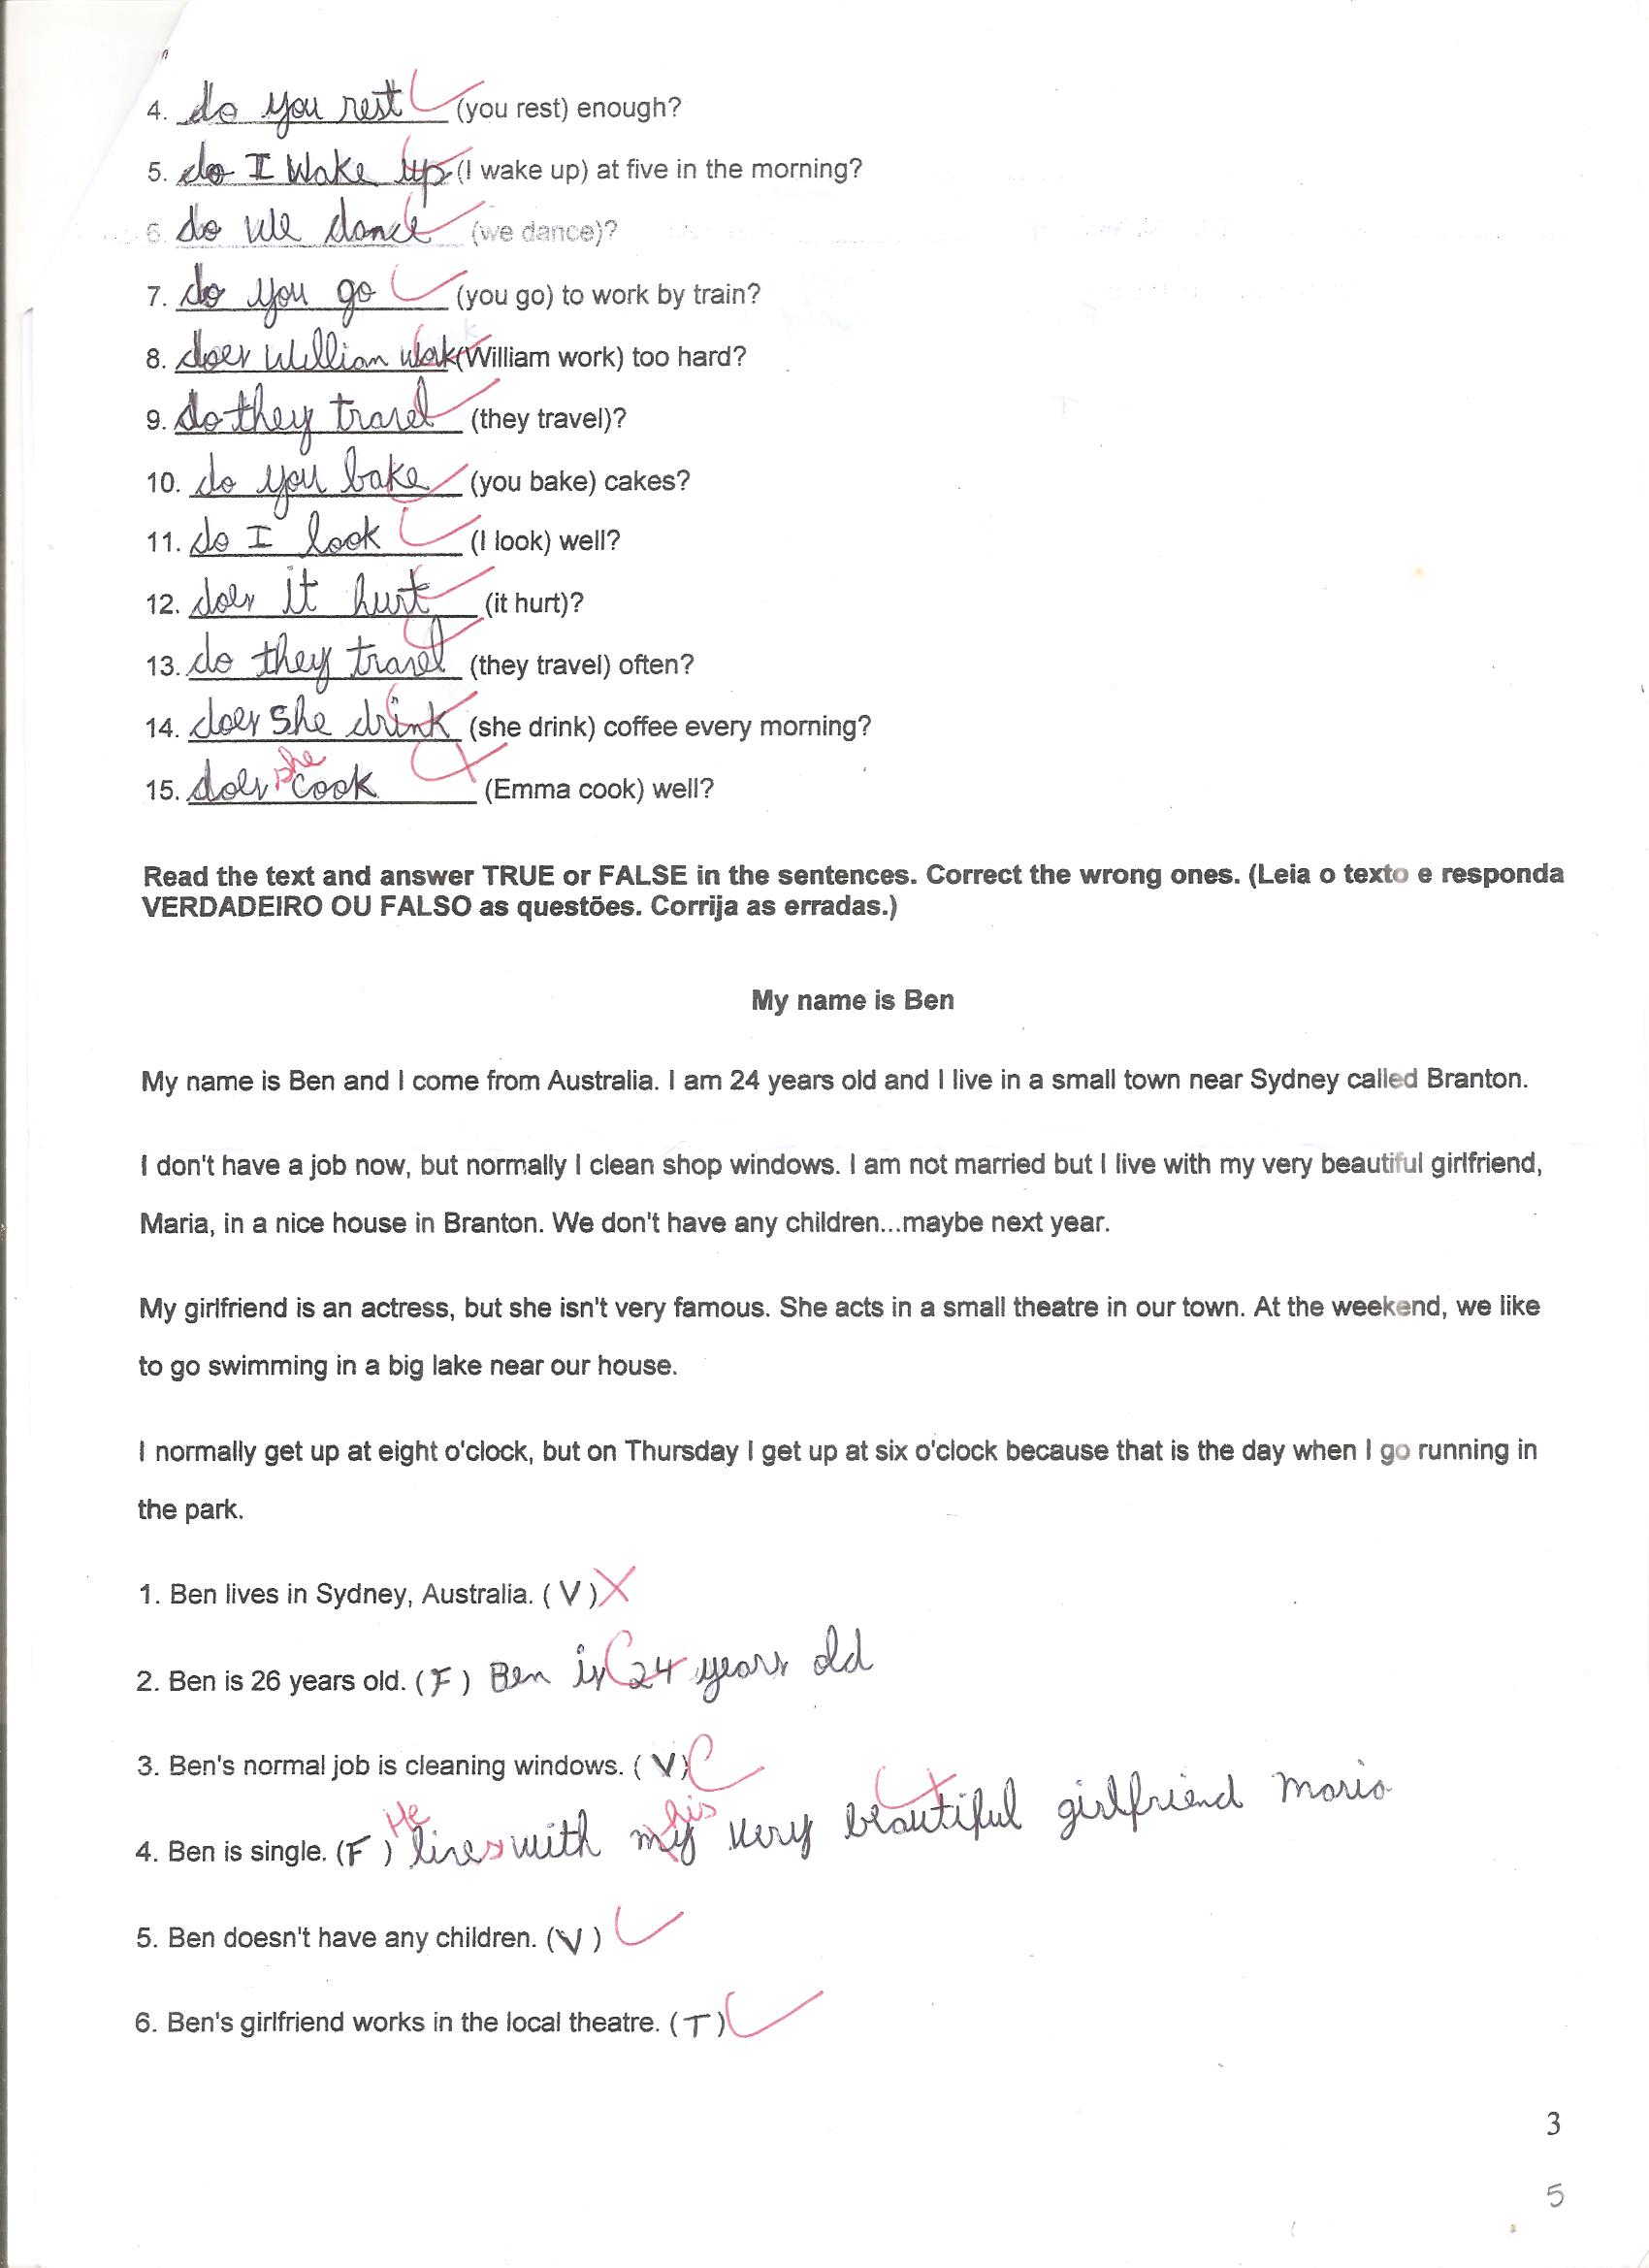 4. do you rest (you rest) enough?
5. do I wake up (I wake up) at five in the morning?
6. do we dance (we dance)?
7. do you go (you go) to work by train?
8. does Willian work (William work) too hard?
9. do they travel (they travel)?
10. do you bake (you bake) cakes?
11. do I look (I look) well?
12. does it hurt (it hurt)?
13. do they travel (they travel) often?
14. does she drink (she drink) coffee every morning?
15. does she cook (Emma cook) well?
Read the text and answer TRUE or FALSE in the sentences. Correct the wrong ones. (Leia o texto e responda
VERDADEIRO OU FALSO as questões. Corrija as erradas.)
My name is Ben
My name is Ben and I come from Australia. I am 24 years old and I live in a small town near Sydney called Branton.
I don't have a job now, but normally I clean shop windows. I am not married but I live with my very beautiful girlfriend,
Maria, in a nice house in Branton. We don't have any children...maybe next year.
My girlfriend is an actress, but she isn't very famous. She acts in a small theatre in our town. At the weekend, we like
to go swimming in a big lake near our house.
I normally get up at eight o'clock, but on Thursday I get up at six o'clock because that is the day when I go running in
the park.
1. Ben lives in Sydney, Australia. (V)
2. Ben is 26 years old. (F) Ben is 24 years old
3. Ben's normal job is cleaning windows. (V)
4. Ben is single. (F) He lives with my his very beautiful girlfriend Maria
5. Ben doesn't have any children. (V)
6. Ben's girlfriend works in the local theatre. (T)
3
5